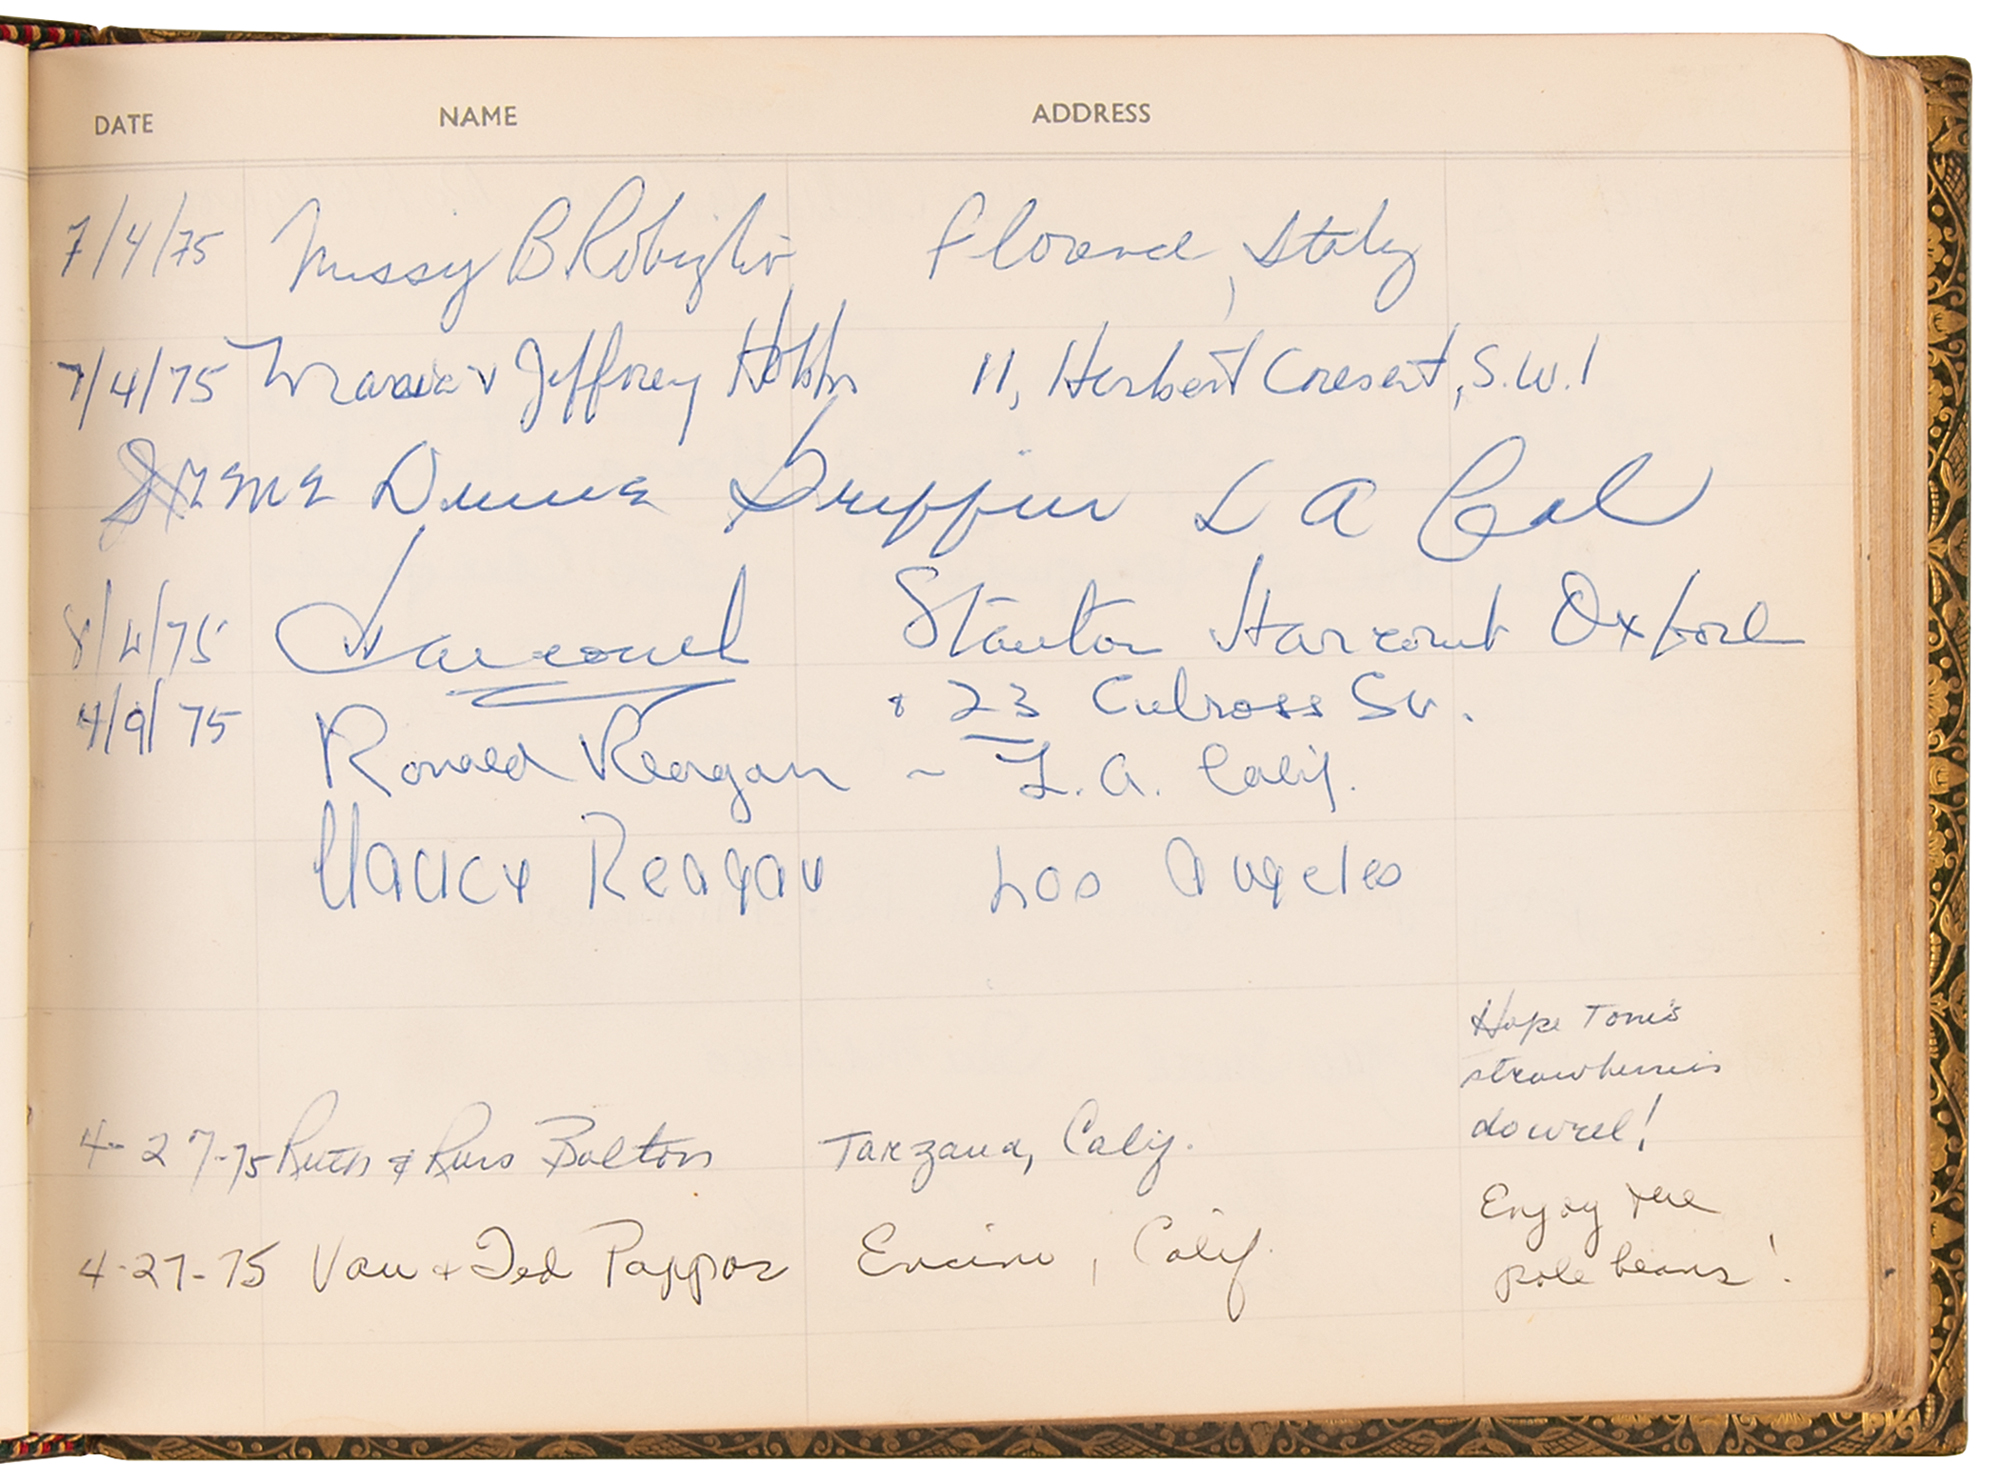 DATE NAME ADDRESS
7/4/75 Missy B Robiglio Florence, Italy
7/4/75 v Jeffrey Hobbs 11, Herbert Cresent, S.W.1
Irene Dunne Griffin L A Cal
8/4/75 Harcourt Stanton Harcourt Oxford
& 23 Culross St.
4/9/75 Ronald Reagan – L.A. Calif.
Nancy Reagan Los Angeles
Hope Tom's
strawberries
do well!
4-27-75 Ruth & Russ Bolton Tarzana, Calif.
Enjoy the
pole beans!
4-27-75 Van & Ted Pappas Encino, Calif.